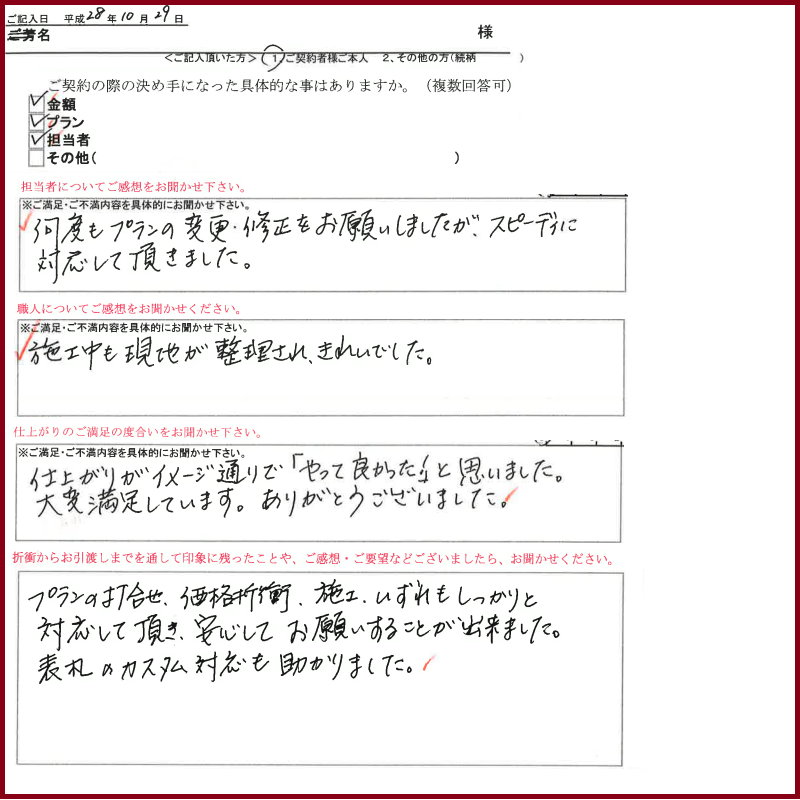 ご記入日 平成28年10月29日
ご芳名 様
<ご記入頂いた方> 1、ご契約者様ご本人 2、その他の方(続柄 )
ご契約の際の決め手になった具体的な事はありますか。（複数回答可）
金額
プラン
担当者
その他( )
担当者についてご感想をお聞かせ下さい。
※ご満足・ご不満内容を具体的にお聞かせ下さい。
何度もプランの変更・修正をお願いしましたが、スピーディに
対応して頂きました。
職人についてご感想をお聞かせください。
※ご満足・ご不満内容を具体的にお聞かせ下さい。
施工中も現地が整理され、きれいでした。
仕上がりのご満足の度合いをお聞かせ下さい。
※ご満足・ご不満内容を具体的にお聞かせ下さい。
仕上がりがイメージ通りで「やって良かった!」と思いました。
大変満足しています。ありがとうございました。
折衝からお引渡しまでを通して印象に残ったことや、ご感想・ご要望などございましたら、お聞かせください。
プランの打合せ、価格折衝、施工、いずれもしっかりと
対応して頂き、安心してお願いすることが出来ました。
表札のカスタム対応も助かりました。